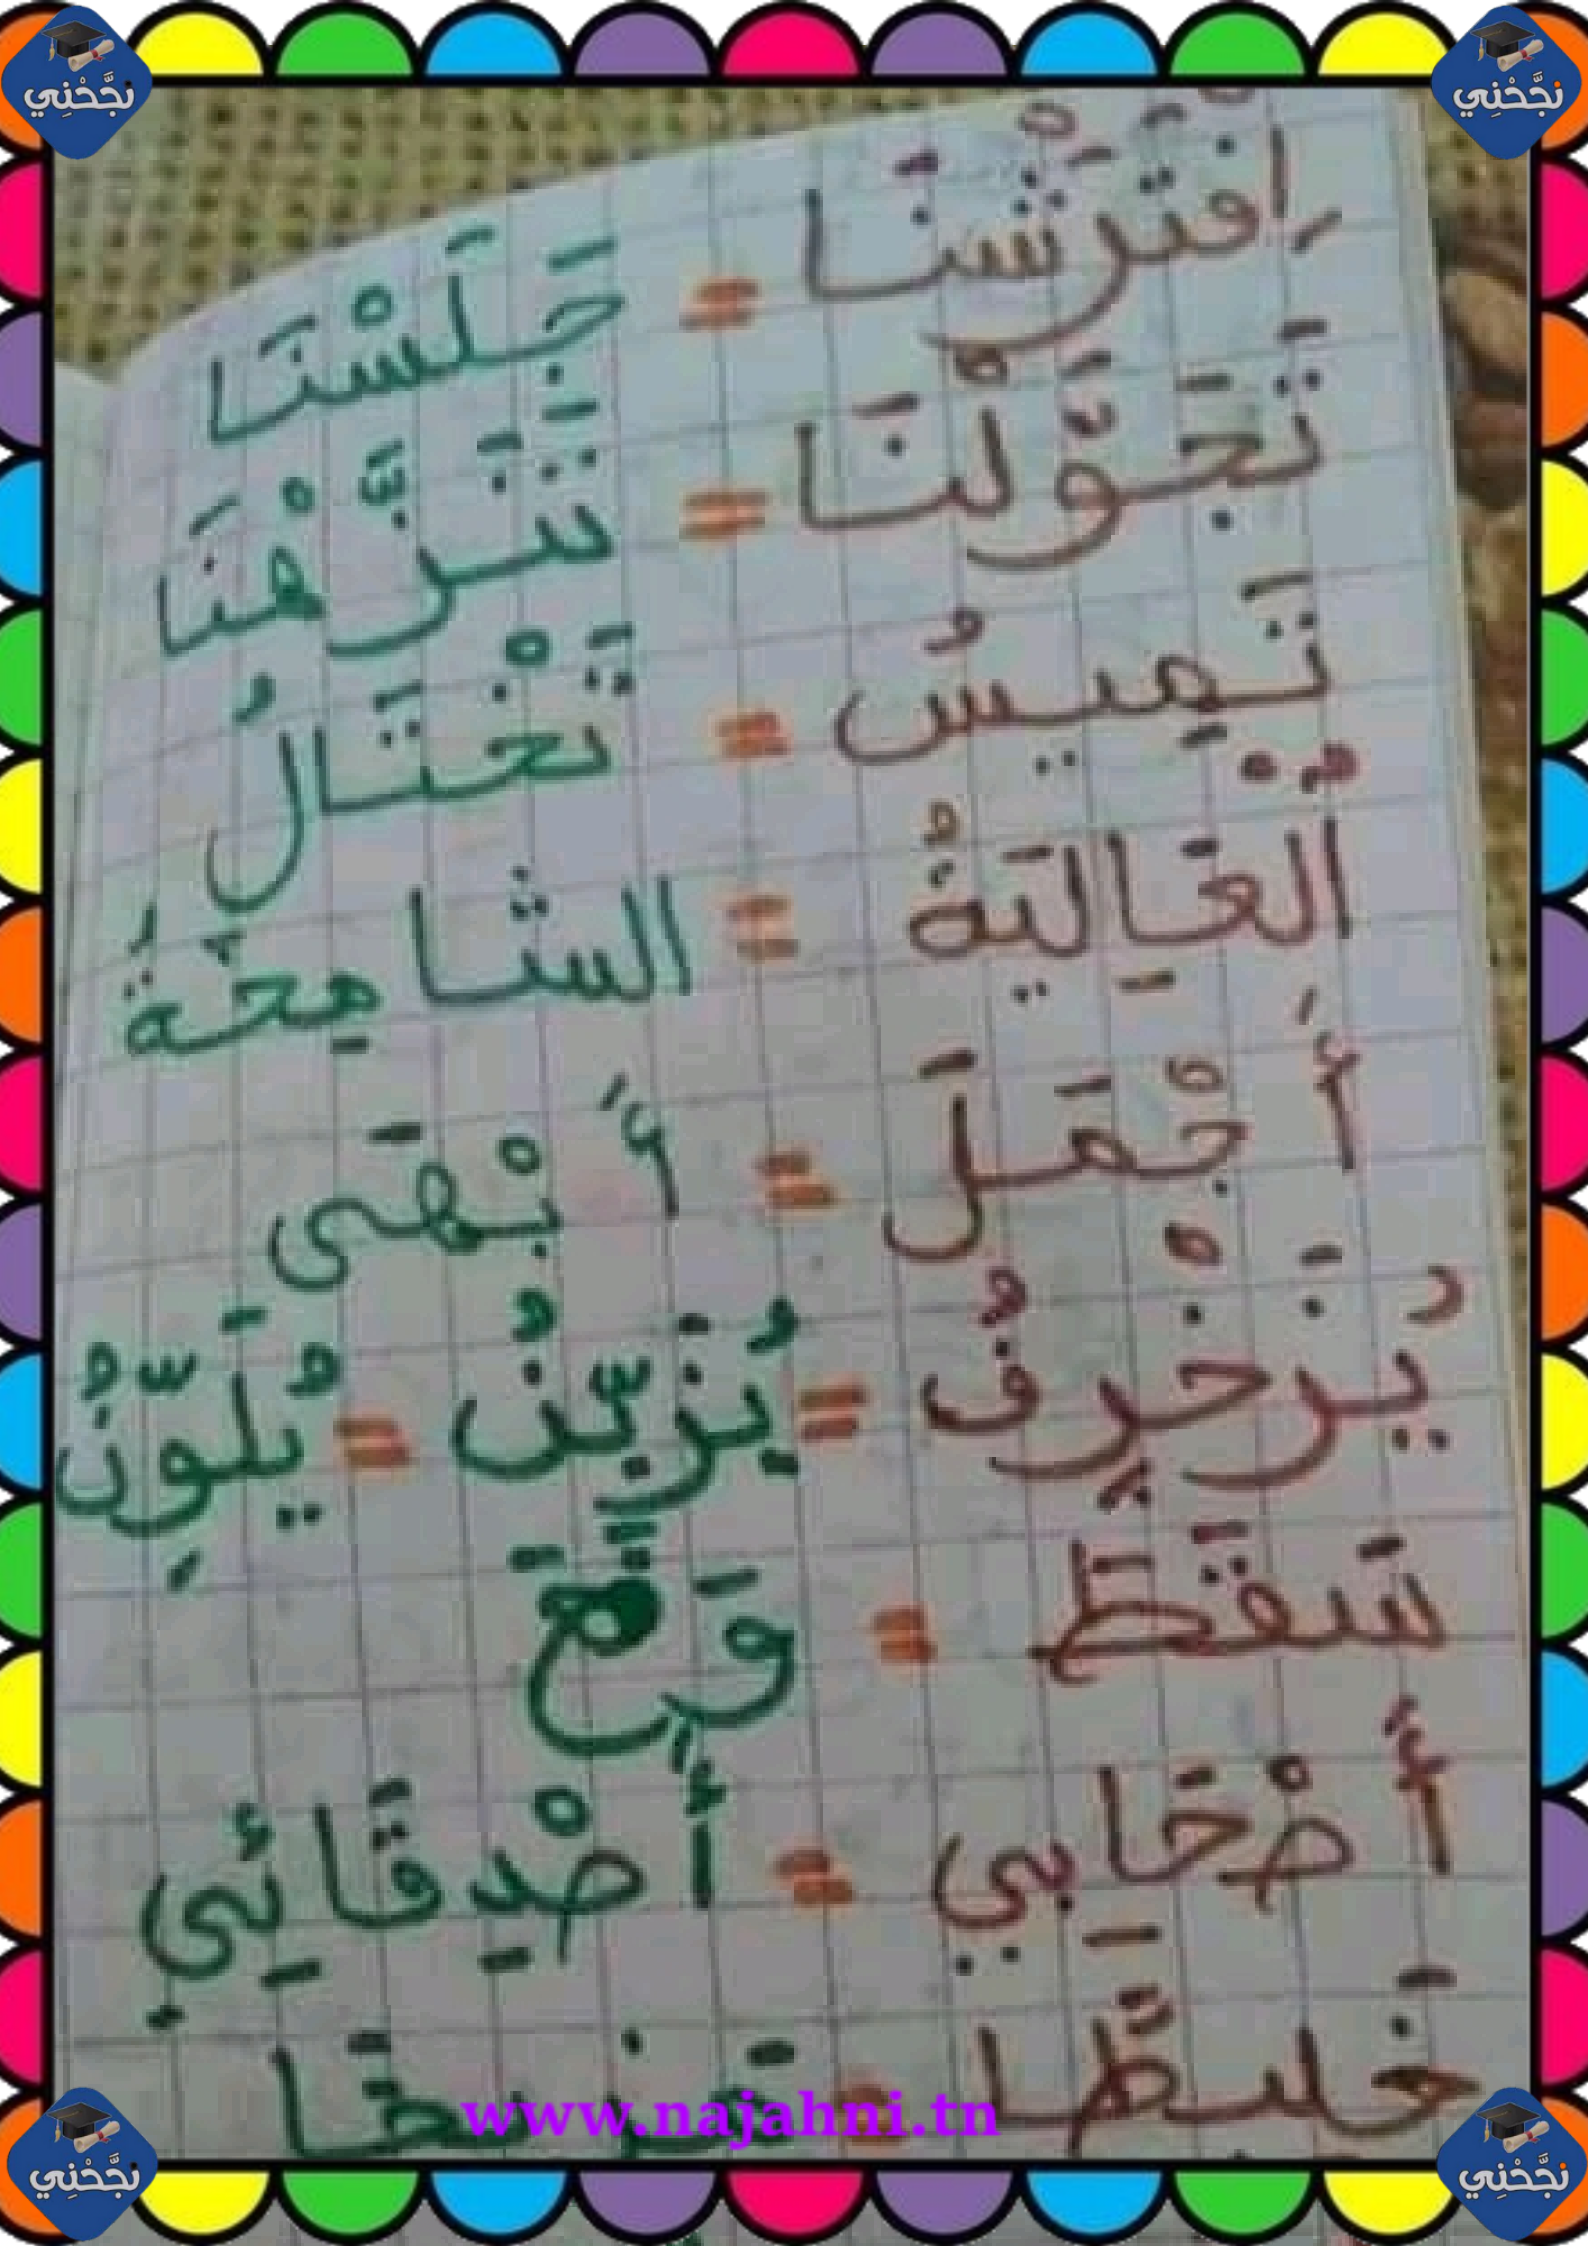 نجّحْنِي نجّحْنِي
اِفْتَرَشْنَا = جَلَسْنَا
تَجَوَّلْنَا = تَنَزَّهْنَا
تَمِيسُ = تَخْتَالُ
الْعَالِيَةُ = الشَامِخَةُ
أَجْمَلَ = أَبْهَى
يُزَخْرِفُ = يُزَيِّنُ = يُلَوِّنُ
سَقَطَ = وَقَعَ
أَصْحَابِي = أَصْدِقَائِي
خَلِيطًا =
www.najahni.tn
نجّحْنِي نجّحْنِي